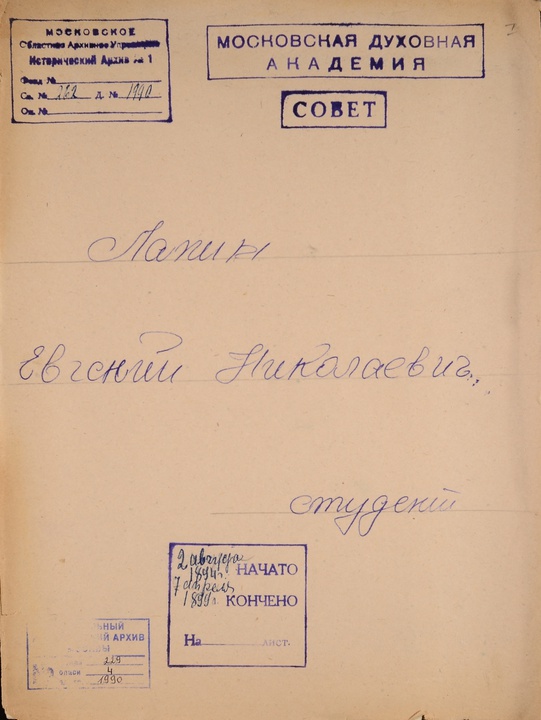 МОСКОВСКОЕ
Областное Архивное Управление
Исторический Архив № 1
Фонд №
Св. № 282 Д. № 1990
Оп. №
МОСКОВСКАЯ ДУХОВНАЯ
АКАДЕМИЯ
СОВЕТ
Лапин
Евгений Николаевич
студент
2 августа
1894 г. НАЧАТО
7 апреля
1899 г. КОНЧЕНО
На лист.
ЬНЫЙ
ИЙ АРХИВ
229
4
1990